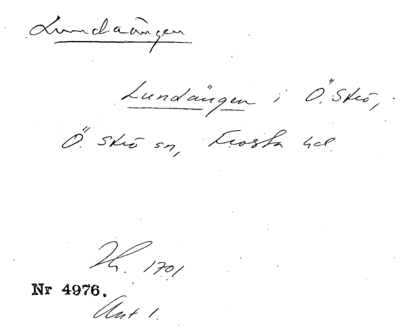 Lundaängen
Lundängen i Ö. Strö,
Ö. Strö sn, Frosta hd
1701
Nr 4976.
Akt 1.